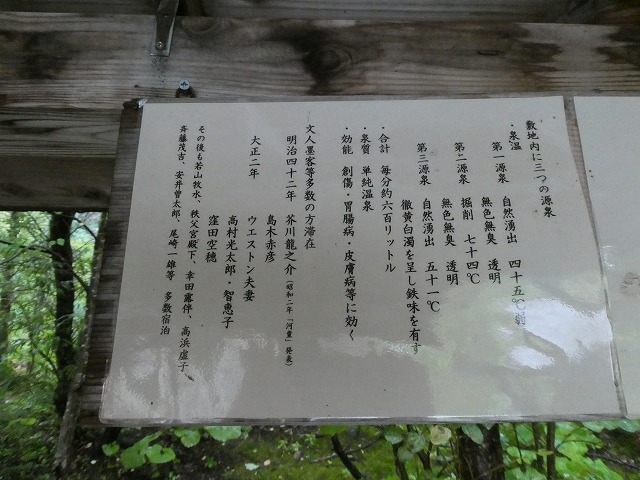 敷地内に三つの源泉
・泉温
第一源泉 自然湧出 四十五℃弱
無色無臭 透明
第二源泉 掘削 七十四℃
無色無臭 透明
第三源泉 自然湧出 五十一℃
微黄白濁を呈し鉄味を有す
・合計 毎分約六百リットル
・泉質 単純温泉
・効能 創傷・胃腸病・皮膚病等に効く
文人墨客等多数の方滞在
明治四十二年 芥川龍之介(昭和二年「河童」発表)
島木赤彦
大正二年 ウエストン夫妻
高村光太郎・智恵子
窪田空穂
その後も若山牧水、秩父宮殿下、幸田露伴、高浜虚子
斉藤茂吉、安井曽太郎、尾崎一雄等 多数宿泊